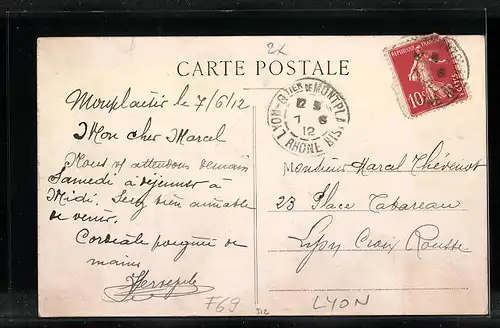 2x
CARTE POSTALE
REPUBLIQUE FRANÇAISE
10
LYON-QTIER DE MONTPLAISIR
7 6
12
RHONE BIS
Monplaisir le 7/6/12
Mon cher Marcel
Nous vs attendons demain
Samedi à déjeuner à
Midi. Serez bien aimable
de venir.
Cordiale poignée de
mains
Monsieur Marcel Thévenot
23 Place Tabareau
Lyon Croix Rousse
F69
312
LYON